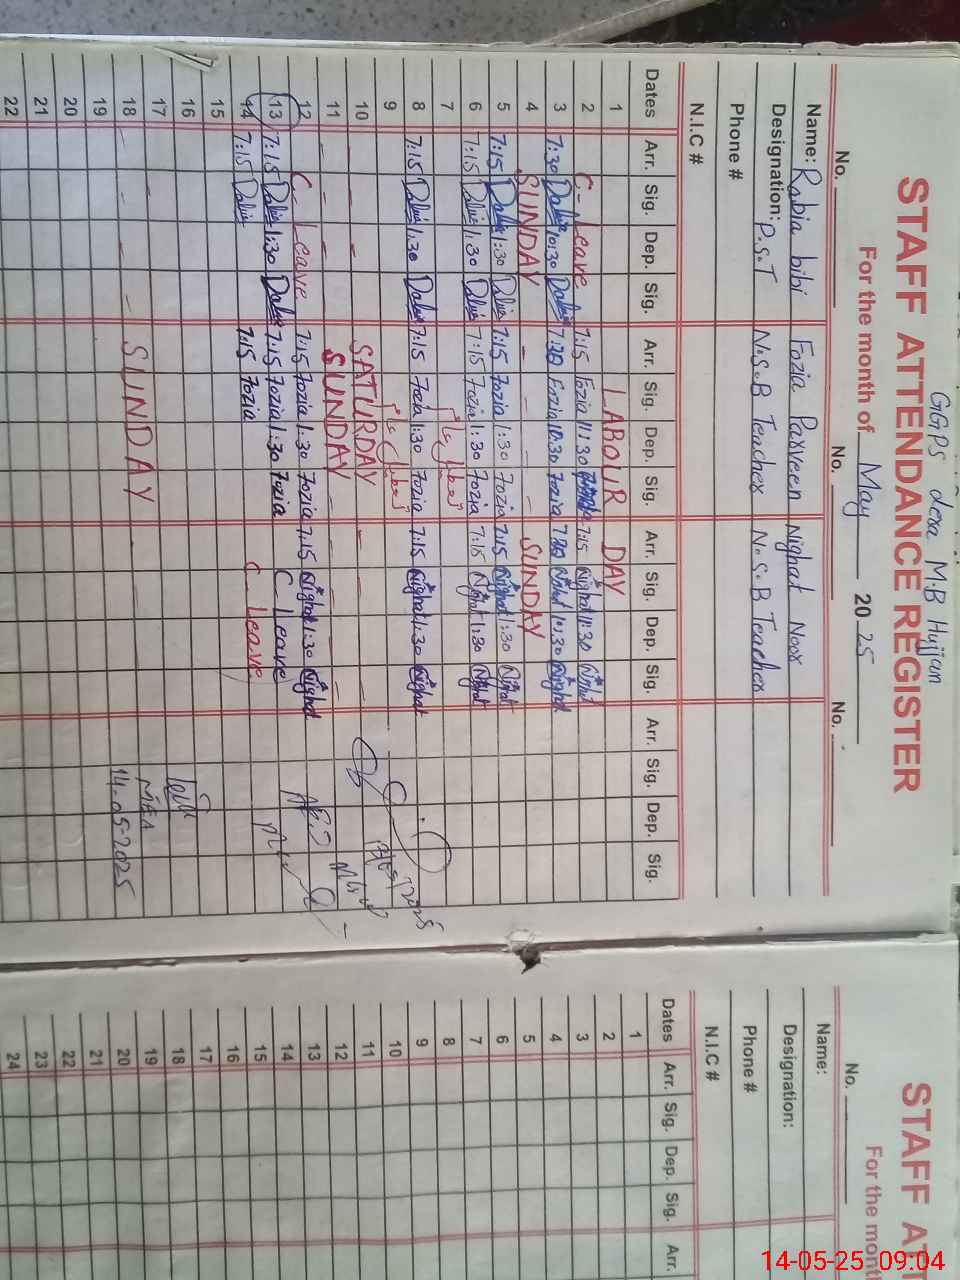 GGPS dera M.B Hujjan
STAFF ATTENDANCE REGISTER
For the month of May 2025
No. No. No.
Name: Rabia bibi Fozia Parveen Nighat Noor
Designation: P.S.T N.S.B Teacher N.S.B Teacher
Phone #
N.I.C #
Dates Arr. Sig. Dep. Sig. Arr. Sig. Dep. Sig. Arr. Sig. Dep. Sig. Arr. Sig. Dep. Sig.
1 LABOUR DAY
2 C- Leave 7:15 Fozia 11:30 7:15 Nighat 11:30 Nighat
3 7:30 10:30 7:30 Fozia 10:30 Fozia 7:30 Nighat 10:30 Nighat
4 SUNDAY - - - SUNDAY
5 7:15 1:30 7:15 Fozia 1:30 Fozia 7:15 Nighat 1:30 Nighat
6 7:15 1:30 7:15 Fozia 1:30 Fozia 7:15 Nighat 1:30 Nighat
7
8 7:15 1:30 7:15 Fozia 1:30 Fozia 7:15 Nighat 1:30 Nighat
9
10 - - SATURDAY - -
11 - - SUNDAY - - - -
12 C- Leave 7:15 Fozia 1:30 Fozia 7:15 Nighat 1:30 Nighat
13 7:15 1:30 7:15 Fozia 1:30 Fozia C Leave
14 7:15 7:15 Fozia C Leave
15
16
17 MEA
18 - - - - SUNDAY 14-05-2025
19
20
21
22
STAFF ATT
For the mont
No.
Name:
Designation:
Phone #
N.I.C #
Dates Arr. Sig. Dep. Sig. Arr.
1
2
3
4
5
6
7
8
9
10
11
12
13
14
15
16
17
18
19
20
21
22
23
24
14-05-25 09:04